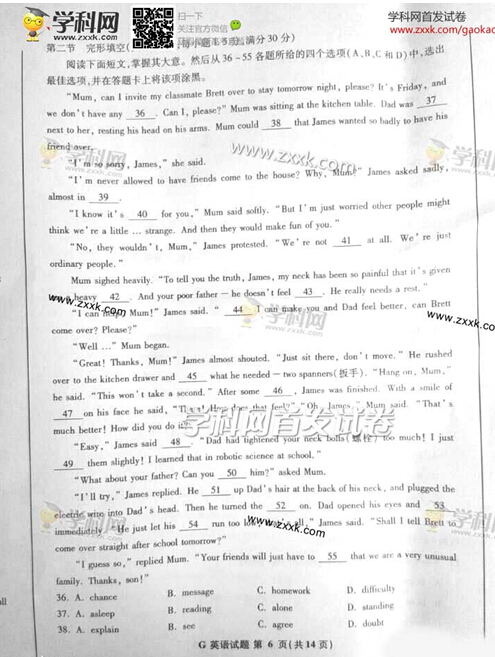 学科网
www.zxxk.com
扫一下
关注官方微信
学科网首发试卷
www.zxxk.com/gaokao
第二节 完形填空(满分30分)
阅读下面短文,掌握其大意。然后从36-55各题所给的四个选项(A、B、C和D)中,选出
最佳选项,并在答题卡上将该项涂黑。
"Mum, can I invite my classmate Brett over to stay tomorrow night, please? It's Friday, and
we don't have any 36 . Can I, please?" Mum was sitting at the kitchen table. Dad was 37
next to her, resting his head on his arms. Mum could 38 that James wanted so badly to have his
friend over.
"I'm so sorry, James," she said.
"I'm never allowed to have friends come to the house? Why, Mum?" James asked sadly,
almost in 39 .
"I know it's 40 for you," Mum said softly. "But I'm just worried other people might
think we're a little ... strange. And then they would make fun of you."
"No, they wouldn't, Mum," James protested. "We're not 41 at all. We're just
ordinary people."
Mum sighed heavily. "To tell you the truth, James, my neck has been so painful that it's given
heavy 42 . And your poor father — he doesn't feel 43 . He really needs a rest."
"I can help, Mum!" James said. " 44 I can make you and Dad feel better, can Brett
come over? Please?"
"Well ..." Mum began.
"Great! Thanks, Mum!" James almost shouted. "Just sit there, don't move." He rushed
over to the kitchen drawer and 45 what he needed — two spanners(扳手). "Hang on, Mum,"
he said. "This won't take a second." After some 46 , James was finished. With a smile of
47 on his face he said, "There! How does that feel?" "Oh, James," Mum said. "That's
much better! How did you do it?"
"Easy," James said 48 . "Dad had tightened your neck bolts(螺栓) too much! I just
49 them slightly! I learned that in robotic science at school."
"What about your father? Can you 50 him?" asked Mum.
"I'll try," James replied. He 51 up Dad's hair at the back of his neck, and plugged the
electric wire into Dad's head. Then he turned the 52 on. Dad opened his eyes and 53
immediately. "He just let his 54 run too low, that's all," James said. "Shall I tell Brett to
come over straight after school tomorrow?"
"I guess so," replied Mum. "Your friends will just have to 55 that we are a very unusual
family. Thanks, son!"
36. A. chance B. message C. homework D. difficulty
37. A. asleep B. reading C. alone D. standing
38. A. explain B. see C. agree D. doubt
G 英语试题 第 6 页(共14页)